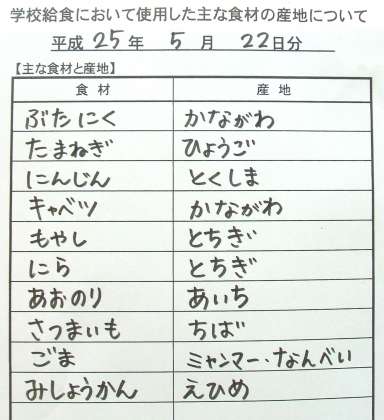 学校給食において使用した主な食材の産地について
平成 25 年 5 月 22 日分
【主な食材と産地】
食材 産地
ぶたにく かながわ
たまねぎ ひょうご
にんじん とくしま
キャベツ かながわ
もやし とちぎ
にら とちぎ
あおのり あいち
さつまいも ちば
ごま ミャンマー・なんべい
みしょうかん えひめ